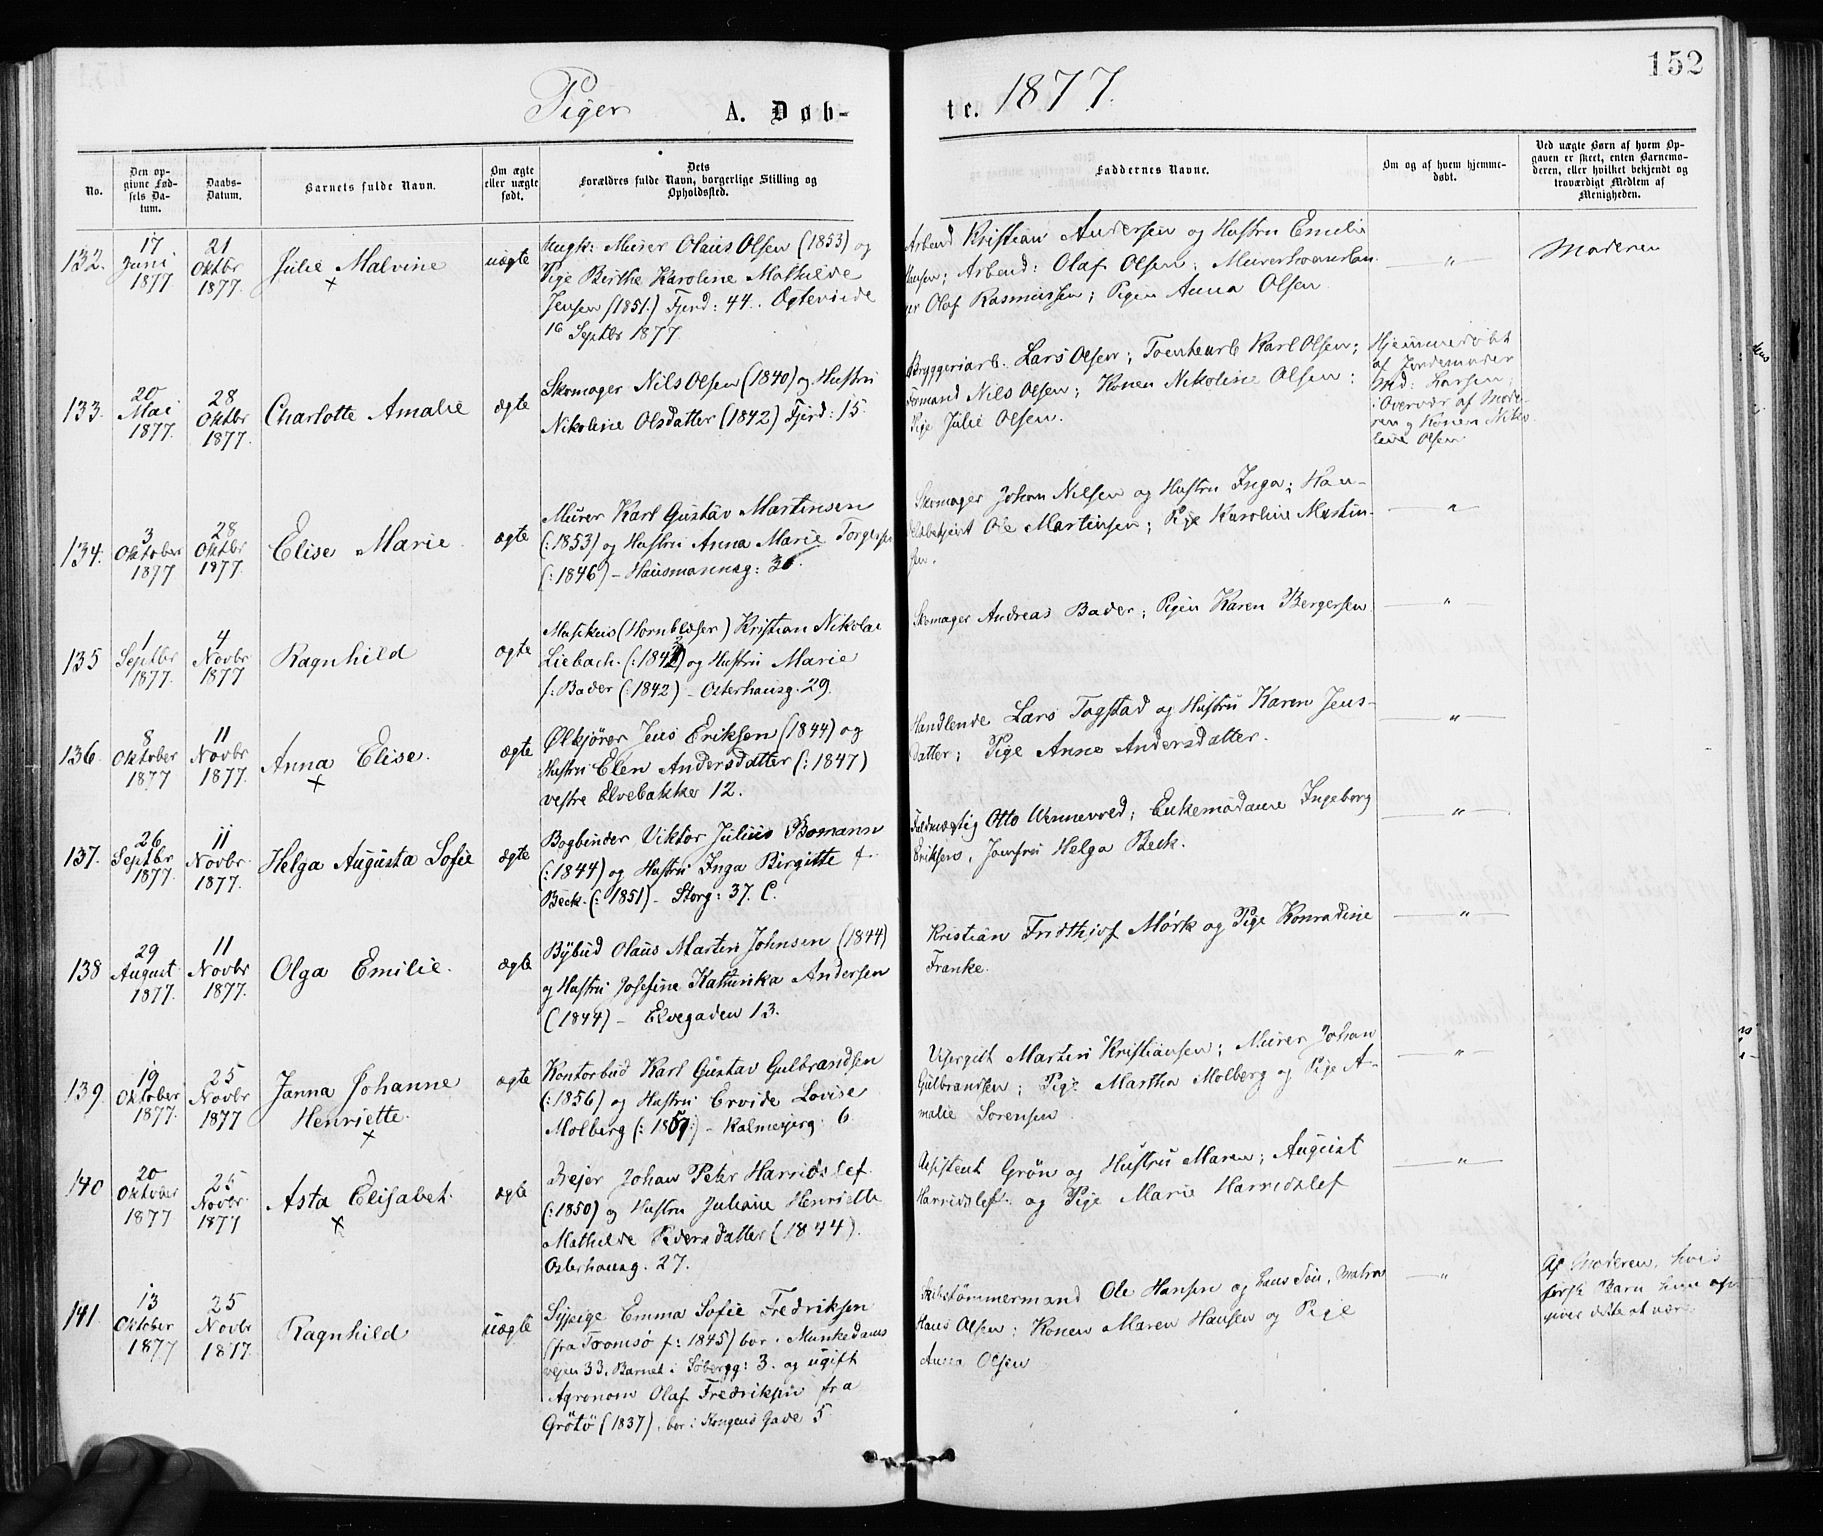 152
Piger A. Døb-
te. 1877.
No.
Den op-
givne Fød-
sels Da-
tum.
Daabs-
Datum.
Barnets fulde Navn.
Om ægte
eller uægte
født.
Dets
Forældres fulde Navn, borgerlige Stilling og
Opholdssted.
Faddernes Navne.
Om og af hvem hjemme-
døbt.
Ved uægte Børn af hvem Op-
gaven er skeet, enten Barnemo-
deren, eller hvilket bekjendt og
troværdigt Medlem af
Menigheden.
132.
17
Juni
1877
21
Oktbr
1877.
Julie Malvine
×
uægte
Ungk: Murer Olaus Olsen (1853) og
Pige Birthe Karoline Mathilde
Jensen (1851.) Fjerd: 44. Ægteviede
16 Septbr 1877.
Arbmd Kristian Andersen og Hustru Emilie
Hansen; Arbmd: Olaf Olsen; Murerhaandlan-
ger Olaf Rasmussen; Pigen Anna Olsen.
"
Moderen
133.
20
Mai
1877.
28
Oktbr
1877.
Charlotte Amalie
ægte
Skomager Nils Olsen (1840) og Hustru
Nikoline Olsdatter (1842) Fjerd: 15.
Bryggeriarb. Lars Olsen; Karl Olsen;
Formand Nils Olsen; Konen Nikoline Olsen;
Pige Julie Olsen.
Hjemmedøbt
af Jordemoder
Md: Larsen,
i Overvær af Mode-
ren og Konen Niko-
line Olsen
134.
3
Oktober
1877
28
Oktbr
1877.
Elise Marie.
ægte
Murer Karl Gustav Martinsen
(:1853) og Hustru Anna Marie Torgersen
(:1846) – Hausmannsg:
Skomager Johan Nilsen og Hustru Inga; Han-
delsbetjent Ole Martinsen; Pige Karoline Martin-
sen.
"
135
1
Septbr
1877.
4
Novbr
1877
Ragnhild
ægte
Musikus (Hornblæser) Kristian Nikolai
Liebach. og Hustru Marie
f: Bader (:1842) – Osterhausg. 29.
Skomager Andreas Bader; Pigen Karen Bergersen.
"
136.
8
Oktober
1877
11
Novbr
1877.
Anna Elise.
×
ægte
Ølkjører Jens Eriksen (1844) og
Hustru Elen Andersdatter (:1847)
vestre Elvebakke 12.
Handlende Lars Togstad og Hustru Karen Jens-
datter; Pige Anne Andersdatter.
"
137.
26
Septbr
1877.
11
Novbr.
1877.
Helga Augusta Sofie
ægte
Bogbinder Viktor Julius Bomann
(:1844) og Hustru Inga Birgitte f.
Beck. (:1851) – Storg: 37. C.
Fuldmægtig Otto Wennevold; Enkemadame Ingeborg
Eriksen, Jomfru Helga Beck.
"
138
29
August
1877.
11
Novbr
1877.
Olga Emilie.
ægte
Bybud Olaus Martin Johnsen (1844)
og Hustru Josefine Katharika Andersen
(1844) – Elvegaden 13.
Kristian Fridthjof Mørk og Pige Konradine
Franke.
"
139.
19
Oktober
1877.
25
Novbr
1877
Janna Johanne
Henriette.
×
ægte
Kontorbud Karl Gustav Gulbrandsen
(:1856) og Hustru Ervide Lovise
Molberg – Kalmeyerg. 6
Uhrgilt Martin Kristiansen; Murer Johan
Gulbrandsen; Pige Martha Molberg og Pige A-
malie Sørensen
"
140
20
Oktober
1877
25
Novbr.
1877
Asta Elisabet.
×
ægte
Johan Peter Harridslef.
(:1850) og Hustru Juliane Henriette
Mathilde Pedersdatter (1844).
Osterhausg. 27.
Assistent Grön og Hustru Maren; August
Harridslef. og Pige Marie Harridslef
"
141.
13
Oktober
1877
25
Novbr.
1877.
Ragnhild
uægte
Sypige Emma Sofie Fredriksen
(fra Tromsø f: 1845) bor i Munkedams
vejen 33. Barnet i Søbergg: 3. og ugift
Agronom Olaf Fredriksen fra
Grötö (1837), bor i Kongens Gade 5.
Skibstömmermand Ole Hansen og hans Søn, matros
Hans Olsen; Konen Maren Hansen og Pige
Anna Olsen
"
Af Moderen, hvis
første Barn hun op-
giver dette at være.